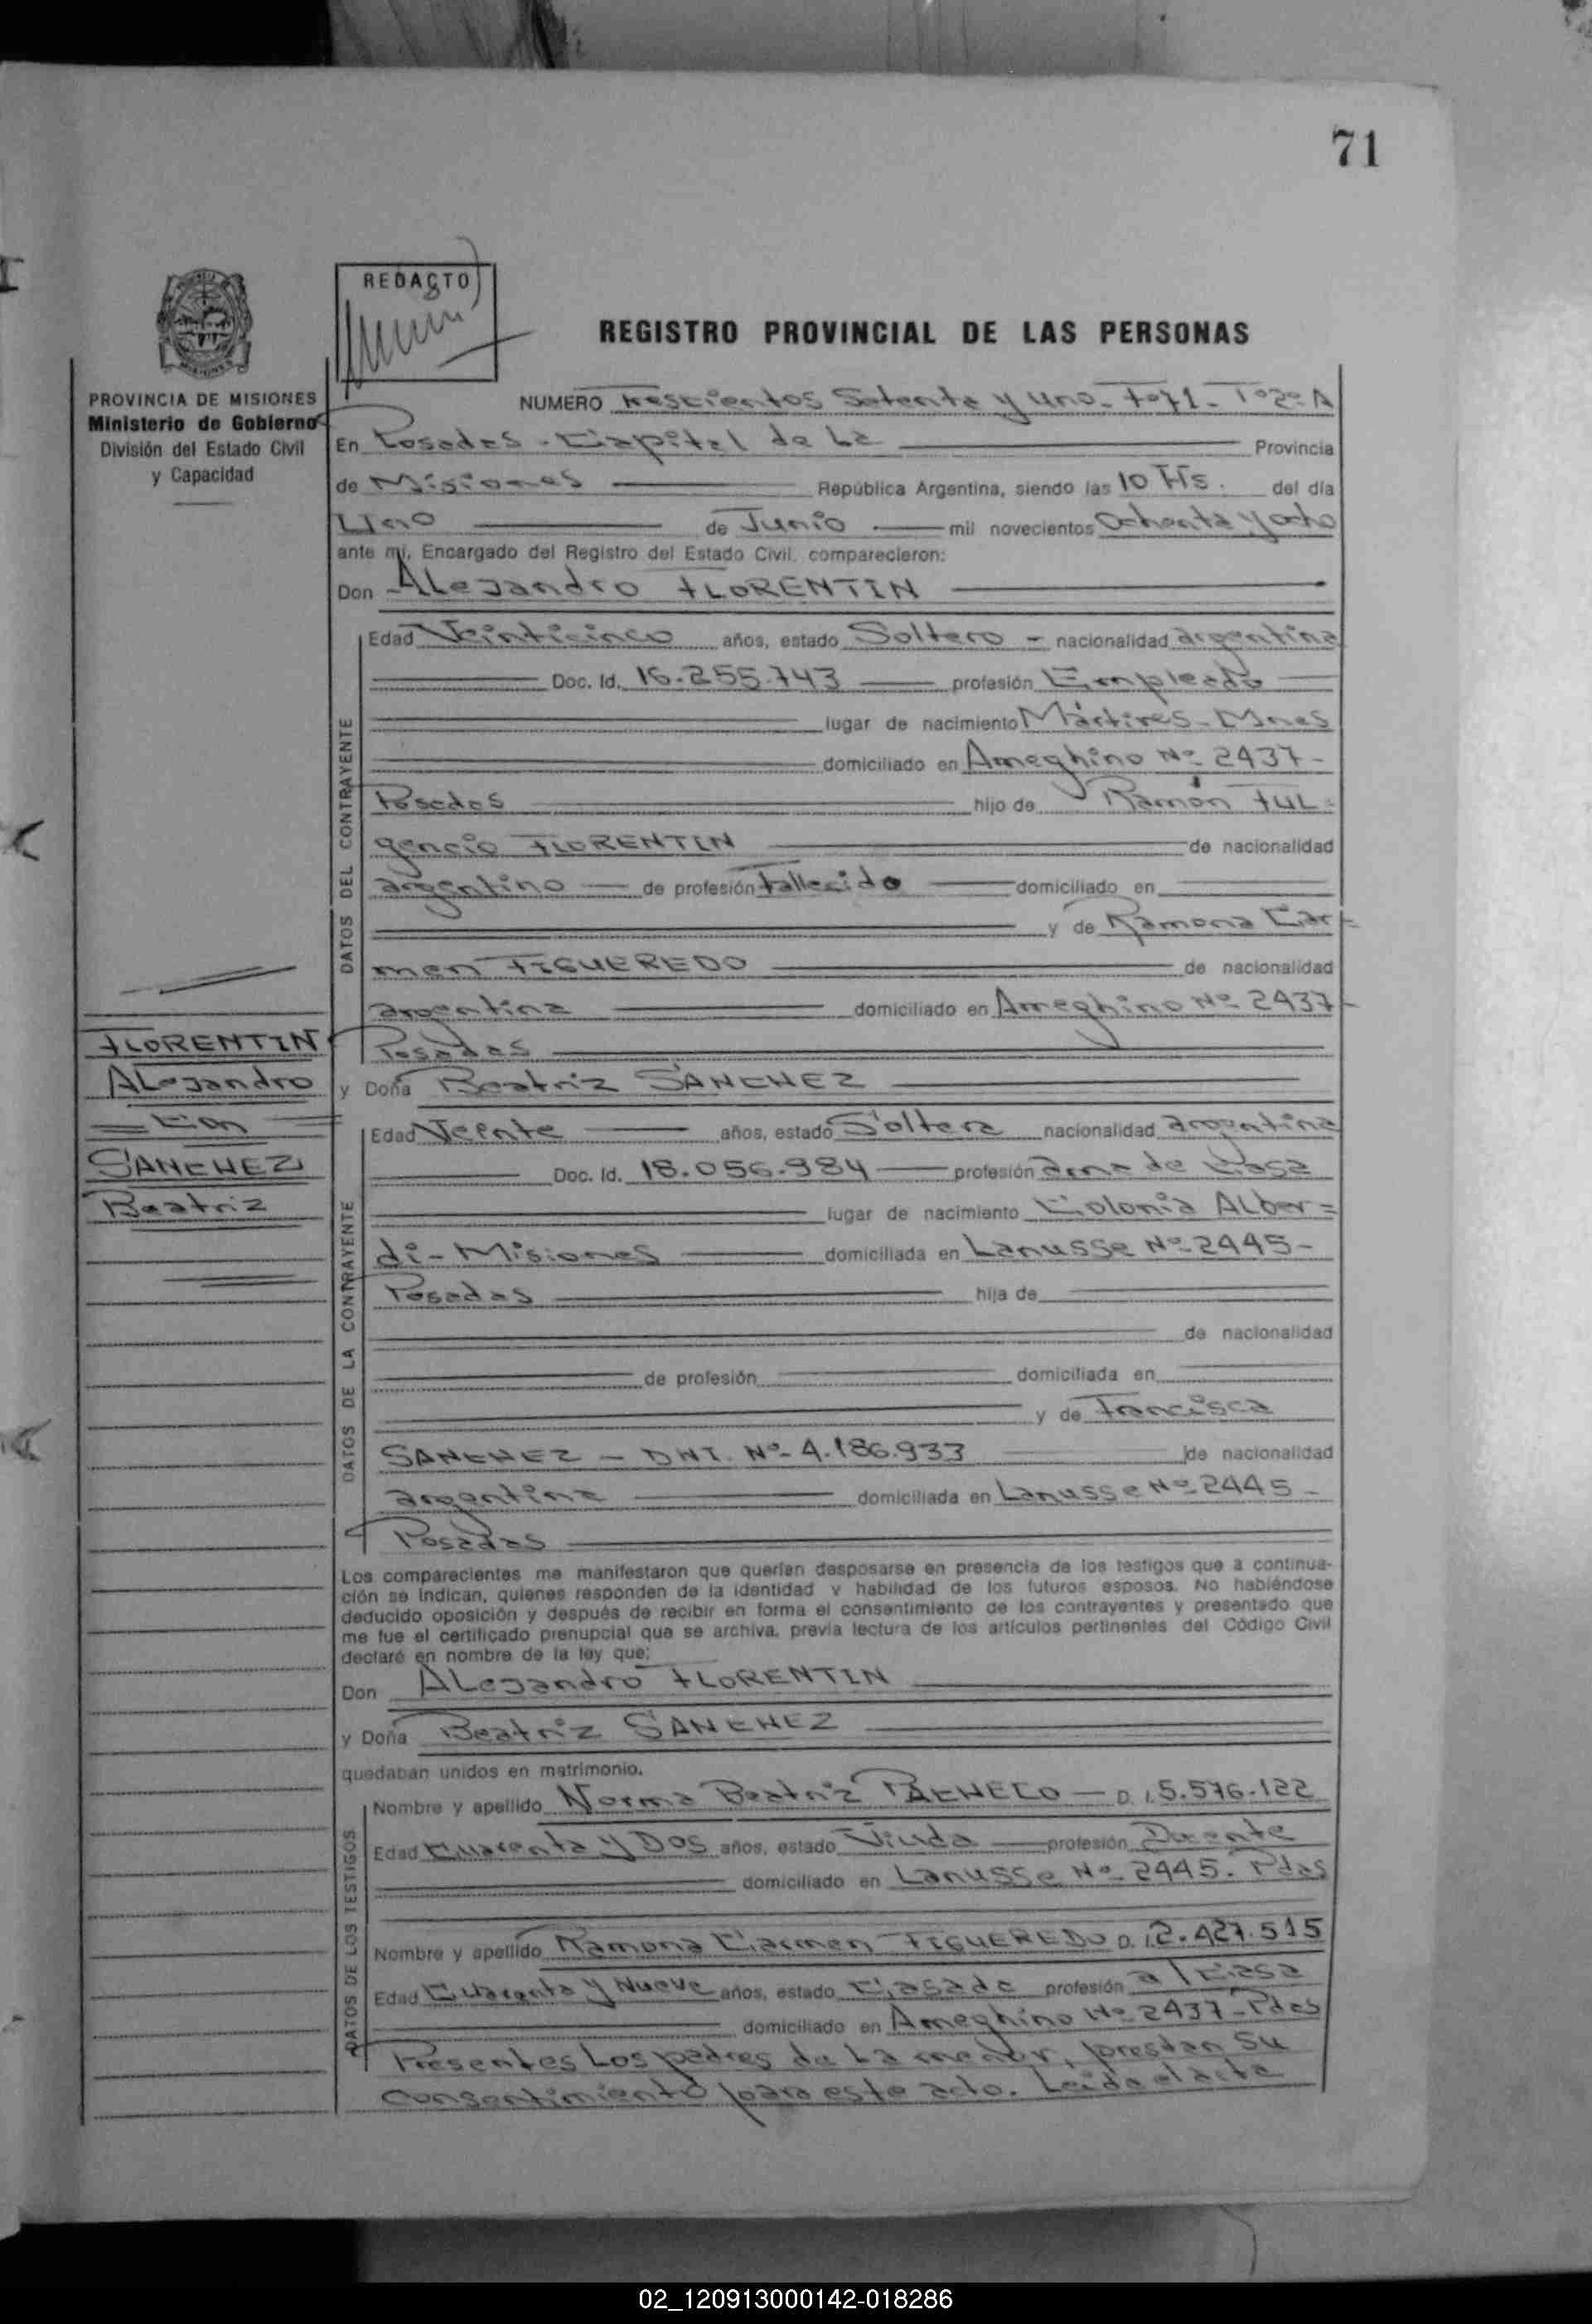 71
REDACTO
REGISTRO PROVINCIAL DE LAS PERSONAS
PROVINCIA DE MISIONES
Ministerio de Gobierno
División del Estado Civil
y Capacidad
NUMERO trescientos Setenta y uno - Fº 71 - Tº 2º A
En Posadas - Capital de La Provincia
de Misiones República Argentina, siendo las 10 Hs. del día
Uno de Junio mil novecientos Ochenta y ocho
ante mí, Encargado del Registro del Estado Civil, comparecieron:
Don Alejandro FLORENTIN
DATOS DEL CONTRAYENTE
Edad Veinticinco años, estado Soltero - nacionalidad argentina
Doc. Id. 16.255.743 profesión Empleado
lugar de nacimiento Mártires - Mnes
domiciliado en Ameghino Nº 2437 -
Posadas hijo de Ramón FUL=
gencio FLORENTIN de nacionalidad
argentino de profesión Fallecido domiciliado en
y de Ramona Car=
men FIGUEREDO de nacionalidad
argentina domiciliado en Ameghino Nº 2437 -
Posadas
FLORENTIN
Alejandro
= Con =
SANCHEZ
Beatriz
y Doña Beatriz SANCHEZ
DATOS DE LA CONTRAYENTE
Edad Veinte años, estado Soltera nacionalidad argentina
Doc. Id. 18.056.984 profesión ama de Casa
lugar de nacimiento Colonia Alber=
di - Misiones domiciliada en Lanusse Nº 2445 -
Posadas hija de
de nacionalidad
de profesión domiciliada en
y de Francisca
SANCHEZ - DNI. Nº 4.186.933 de nacionalidad
argentina domiciliada en Lanusse Nº 2445 -
Posadas
Los comparecientes me manifestaron que querían desposarse en presencia de los testigos que a continua-
ción se indican, quienes responden de la identidad y habilidad de los futuros esposos. No habiéndose
deducido oposición y después de recibir en forma el consentimiento de los contrayentes y presentado que
me fue el certificado prenupcial que se archiva, previa lectura de los artículos pertinentes del Código Civil
declaré en nombre de la ley que:
Don Alejandro FLORENTIN
y Doña Beatriz SANCHEZ
quedaban unidos en matrimonio.
DATOS DE LOS TESTIGOS
Nombre y apellido Norma Beatriz PACHECO - D. I. 5.576.122
Edad Cuarenta y Dos años, estado Viuda profesión Docente
domiciliado en Lanusse Nº 2445. Pdas
Nombre y apellido Ramona Carmen FIGUEREDO D. I. 2.427.515
Edad Cuarenta y Nueve años, estado Casada profesión a/Casa
domiciliado en Ameghino Nº 2437 - Pdas
Presentes Los padres de La menor, prestan su
consentimiento para este acto. Leida el acta
02_120913000142-018286